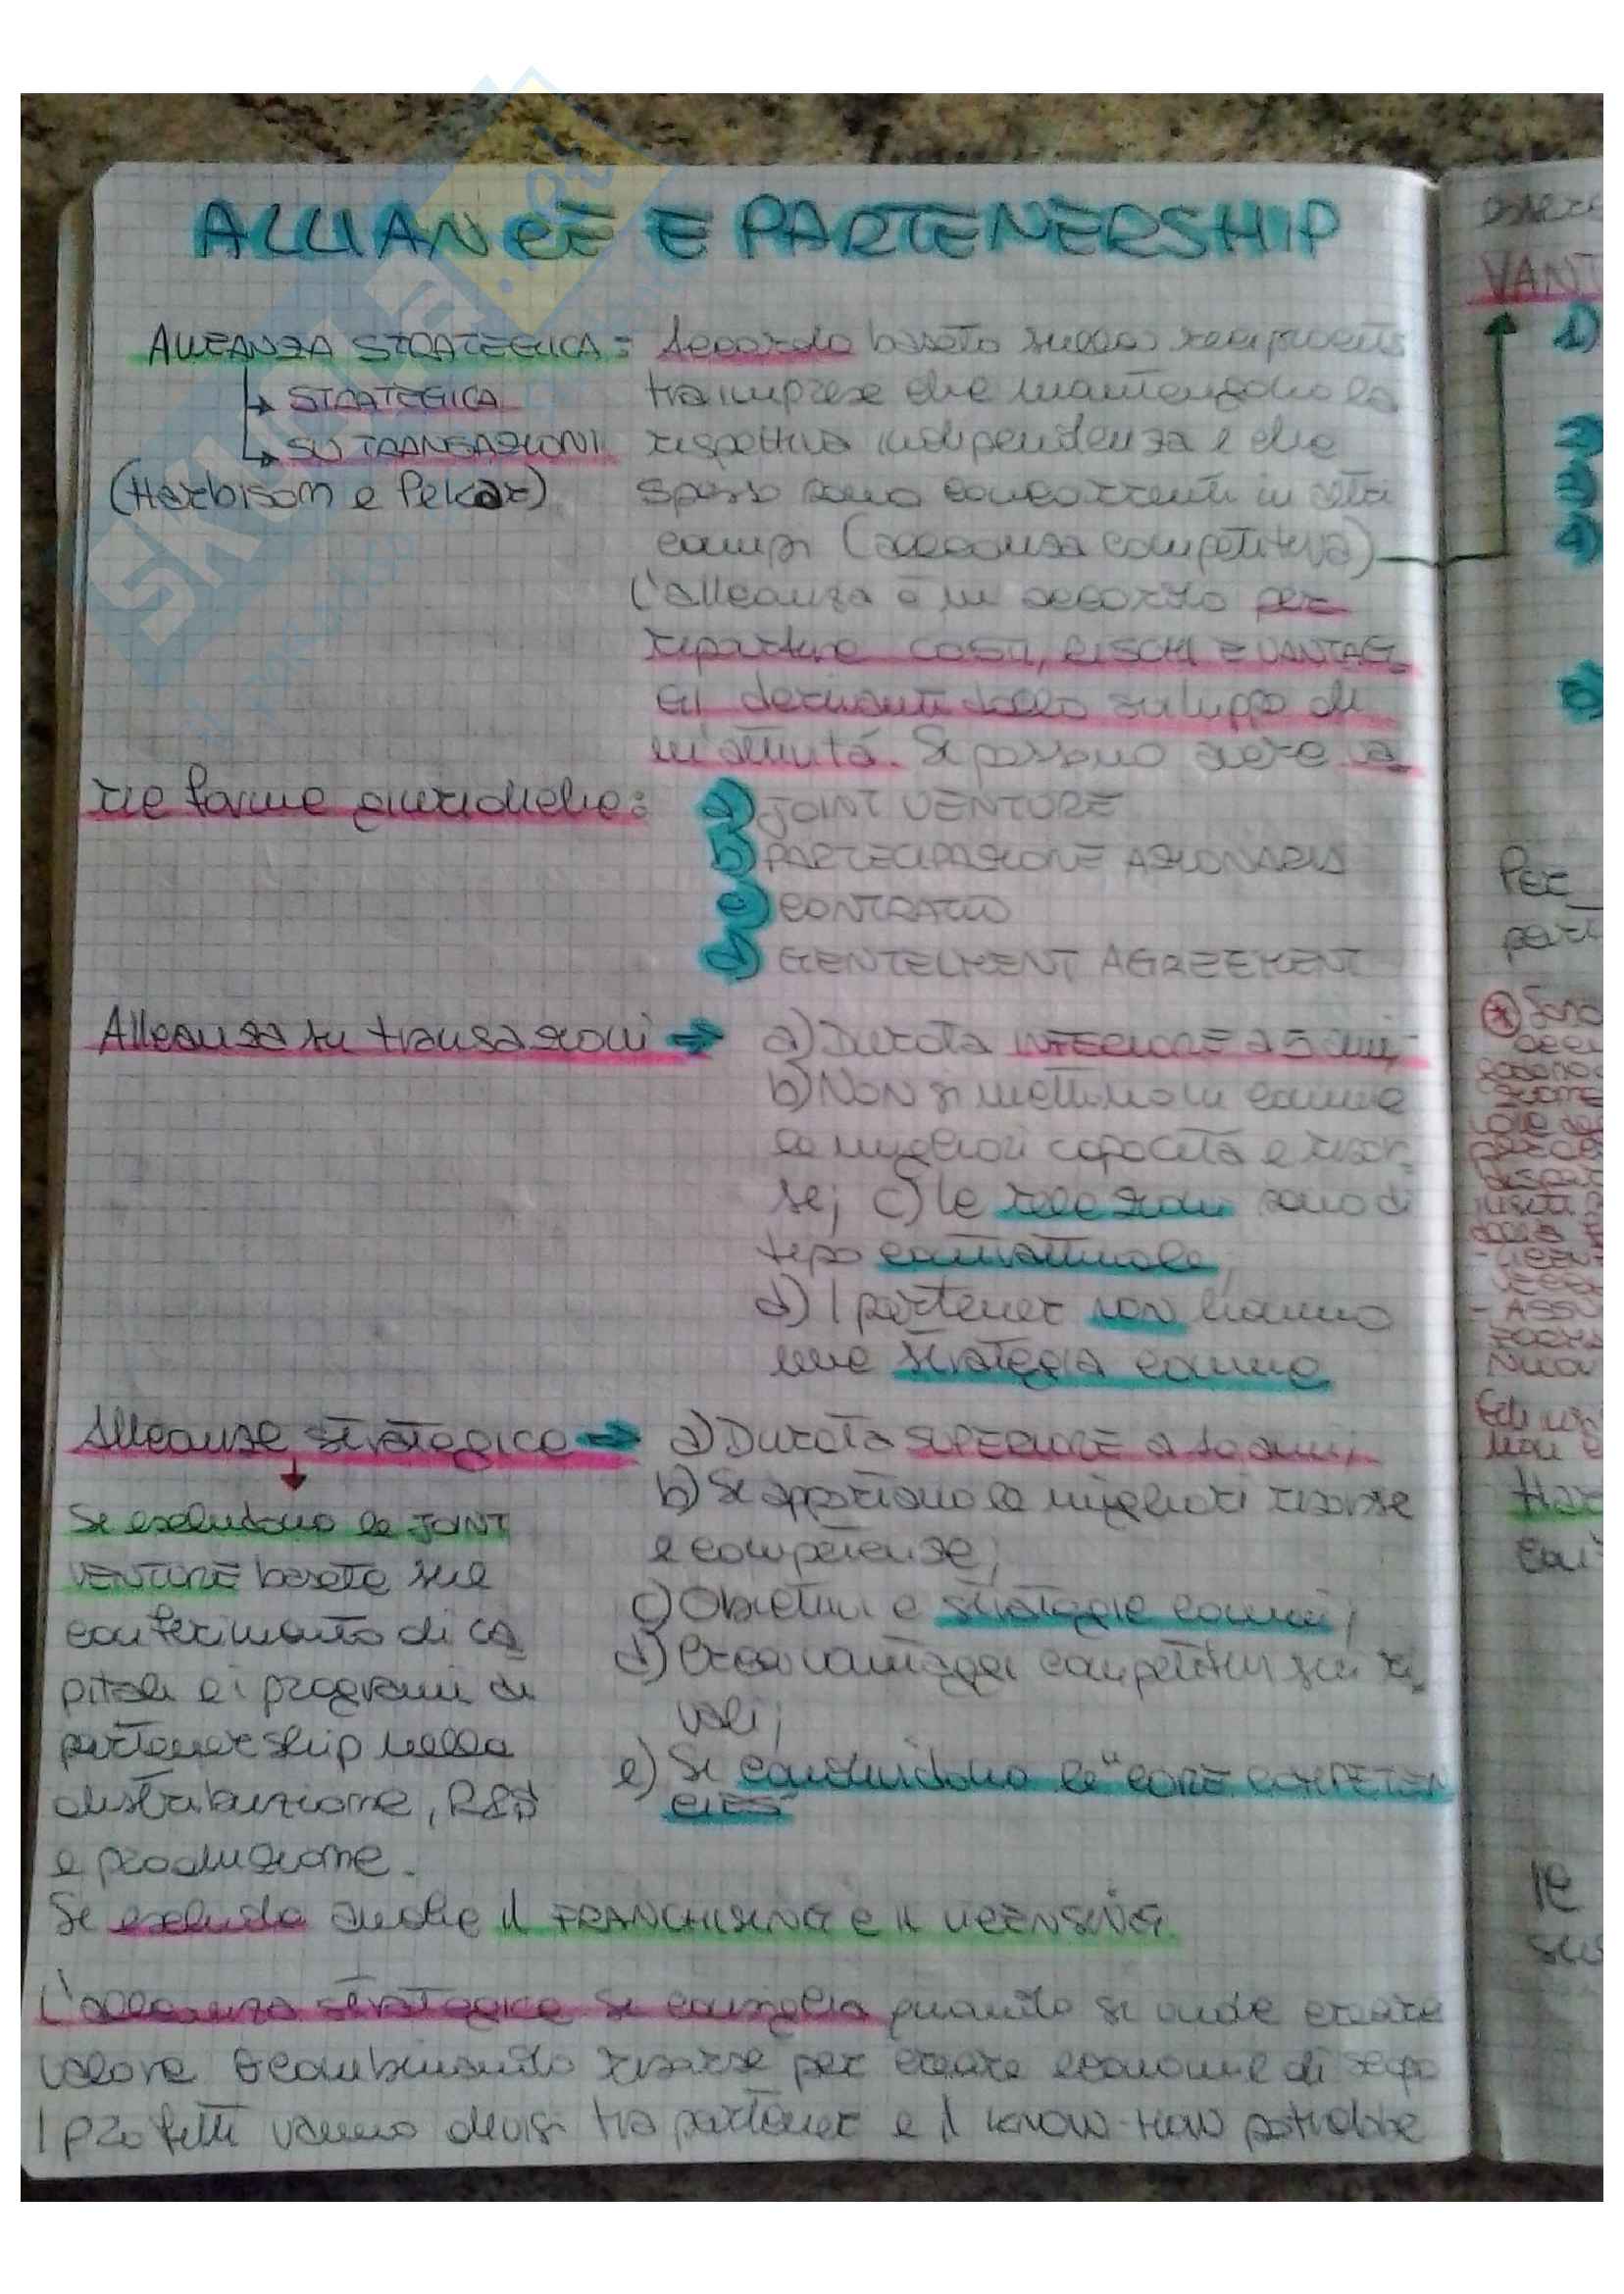 ALLIANCE E PARTENERSHIP
ALLEANZA STRATEGICA: Accordo basato sulla reciprocità
↳ STRATEGICA tra imprese che mantengono la
↳ SU TRANSAZIONI rispettiva indipendenza e che
(Harbison e Pekar) spesso sono concorrenti in altri
campi (alleanza competitiva)
L'alleanza è un accordo per
ripartire COSTI, RISCHI E VANTAG
GI derivanti dallo sviluppo di
un'attività. Si possono avere va
rie forme giuridiche: a) JOINT VENTURE
b) PARTECIPAZIONE AZIONARIA
c) CONTRATTO
d) GENTELMENT AGREEMENT
Alleanza su transazioni → a) Durata INFERIORE a 5 anni;
b) Non si mettono in comune
le migliori capacità e risor
se; c) le relazioni sono di
tipo contrattuale;
d) I partener non hanno
una strategia comune
Alleanze strategica → a) Durata SUPERIORE a 10 anni;
b) Si apportano le migliori risorse
e competenze;
c) Obiettivi e strategie comuni;
d) Crea vantaggi competitivi sui ri
vali;
e) Si condividono le "CORE COMPETEN
CIES"
Si escludono le JOINT
VENTURE basate sul
conferimento di ca
pitali e i programmi di
partenership nella
distribuzione, R&D
e produzione.
Si esclude anche il FRANCHISING e il LICENSING.
L'alleanza strategica si consiglia quando si vuole creare
valore combinando risorse per creare economie di scopo
I profitti vanno divisi tra partener e il know-how potrebbe
VANT
1)
2)
3)
4)
5)
Per
part
- ASSU
SKUOLA.net